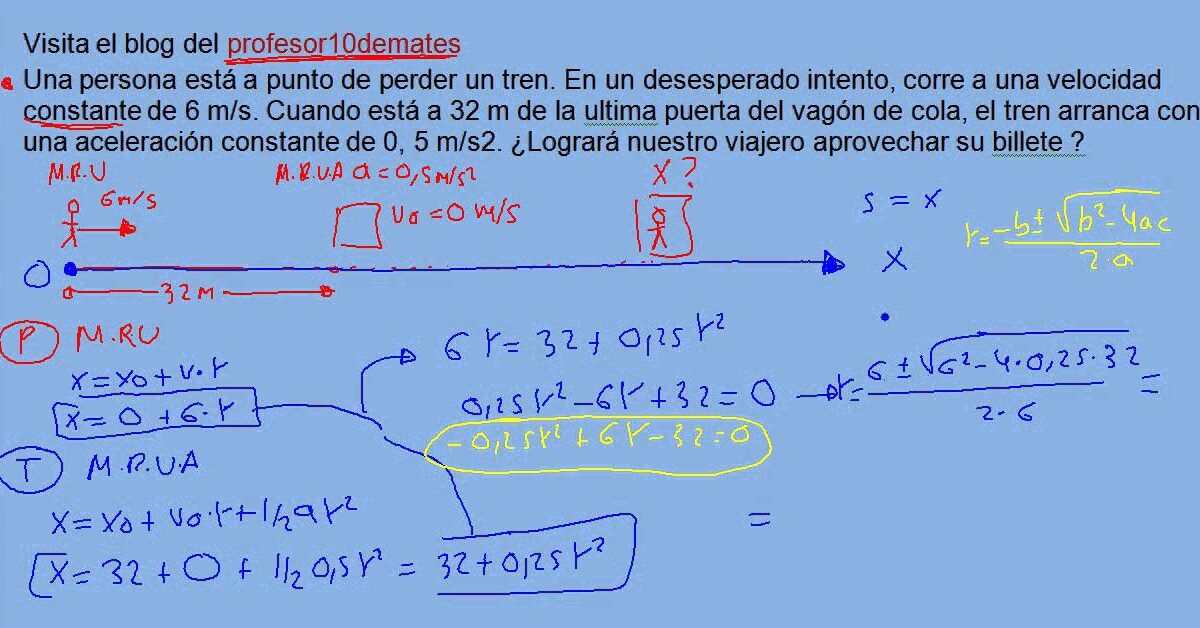 Visita el blog del profesor10demates
Una persona está a punto de perder un tren. En un desesperado intento, corre a una velocidad
constante de 6 m/s. Cuando está a 32 m de la ultima puerta del vagón de cola, el tren arranca con
una aceleración constante de 0, 5 m/s2. ¿Logrará nuestro viajero aprovechar su billete ?
M.R.U
M.R.U.A a = 0,5 m/s²
X?
6 m/s
v₀ = 0 m/s
s = x
t = -b ± √b² - 4ac / 2·a
0
X
32 m
P M.R.U
x = x₀ + v·t
x = 0 + 6·t
6t = 32 + 0,25t²
0,25t² - 6t + 32 = 0
t = 6 ± √6² - 4·0,25·32 / 2·6 =
-0,25t² + 6t - 32 = 0
T M.R.U.A
x = x₀ + v₀·t + 1/2 a t²
=
x = 32 + 0 + 1/2 0,5t² = 32 + 0,25t²